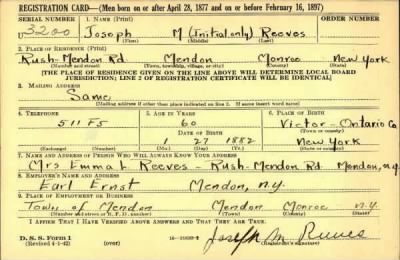 REGISTRATION CARD—(Men born on or after April 28, 1877 and on or before February 16, 1897)
SERIAL NUMBER 1. NAME (Print)
U 3200 Joseph M (Initial only) Reeves
(First) (Middle) (Last)
2. PLACE OF RESIDENCE (Print)
Rush-Mendon Rd. Mendon Monroe New York
(Number and street) (Town, township, village, or city) (County) (State)
[THE PLACE OF RESIDENCE GIVEN ON THE LINE ABOVE WILL DETERMINE LOCAL BOARD
JURISDICTION; LINE 2 OF REGISTRATION CERTIFICATE WILL BE IDENTICAL]
3. MAILING ADDRESS
Same
[Mailing address if other than place indicated on line 2. If same insert word same]
4. TELEPHONE 5. AGE IN YEARS 6. PLACE OF BIRTH
511 F5 60 Victor - Ontario Co
DATE OF BIRTH (Town or county)
1 27 1882 New York
(Exchange) (Number) (Mo.) (Day) (Yr.) (State or country)
7. NAME AND ADDRESS OF PERSON WHO WILL ALWAYS KNOW YOUR ADDRESS
Mrs Emma L Reeves - Rush-Mendon Rd. Mendon, N.Y.
8. EMPLOYER'S NAME AND ADDRESS
Earl Ernst Mendon, N.Y.
9. PLACE OF EMPLOYMENT OR BUSINESS
Town of Mendon Mendon Monroe N.Y.
(Number and street or R. F. D. number) (Town) (County) (State)
I AFFIRM THAT I HAVE VERIFIED ABOVE ANSWERS AND THAT THEY ARE TRUE.
D. S. S. Form 1
(Revised 4-1-42) (over) Joseph M Reeves
(Registrant's signature)